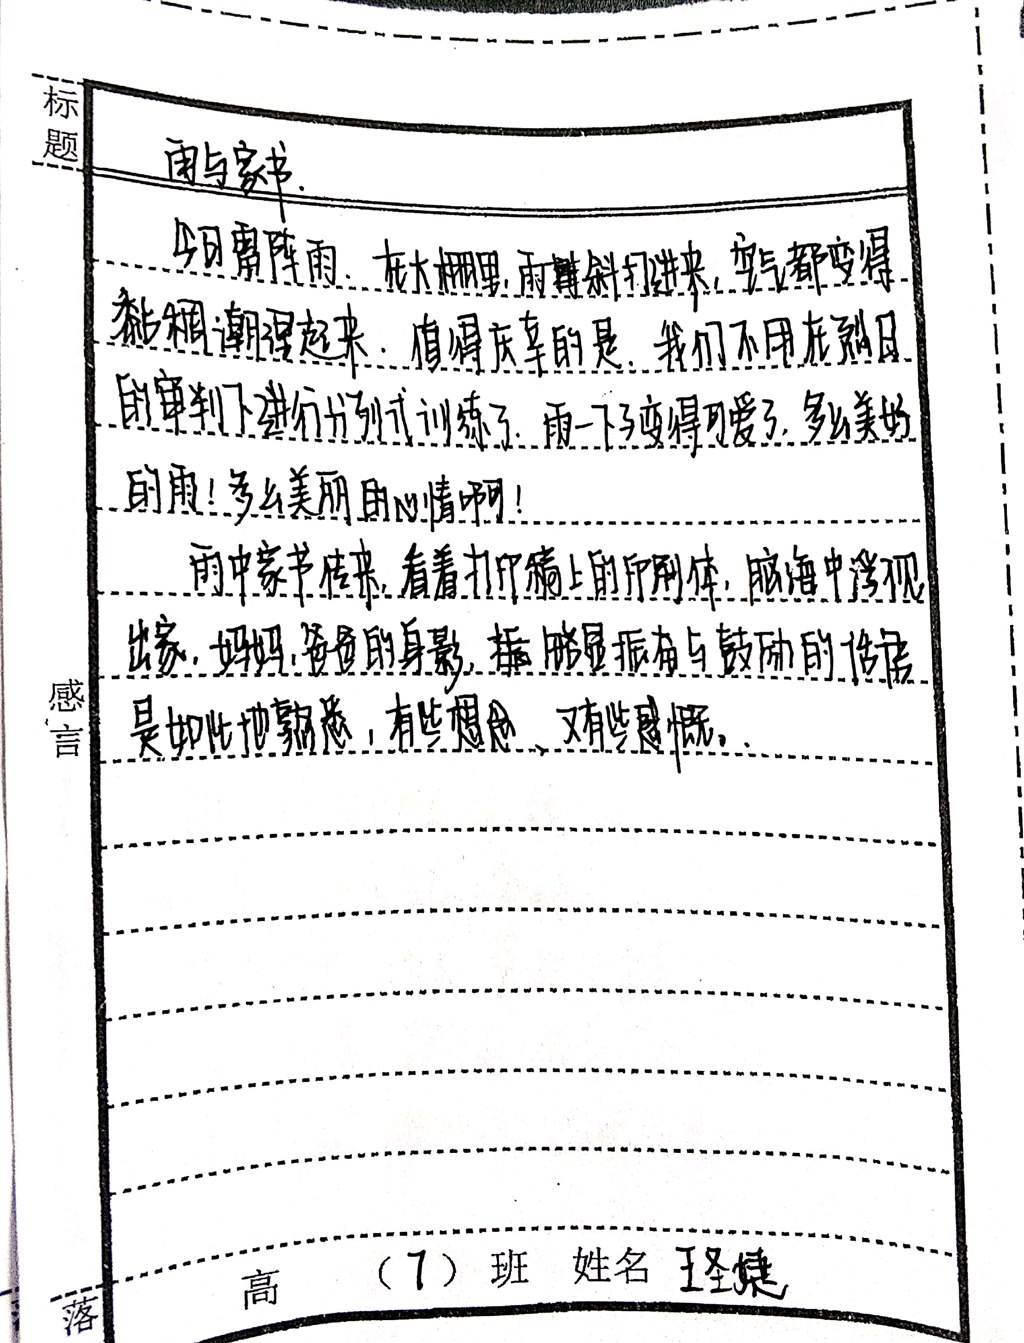 标题
雨与家书.
今日雷阵雨. 在大棚里,雨斜打进来,空气都变得
黏稠潮湿起来. 值得庆幸的是. 我们不用在烈日
的审判下进行分列式训练了. 雨一下子变得可爱了. 多么美好
的雨!多么美丽的心情啊!
雨中家书传来,看着打印稿上的印刷体,脑海中浮现
出家.妈妈,爸爸的身影, 振奋与鼓励的话语
感言
是如此地熟悉,有些想念、又有些感慨。
高 (7) 班 姓名 王圣婕
落